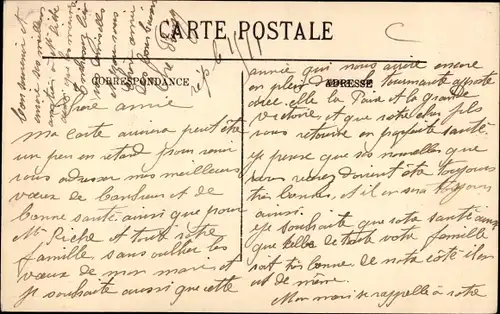 CARTE POSTALE
CORRESPONDANCE
ADRESSE
Chère amie
ma carte arrivera peut être
un peu en retard pour venir
vous adresser mes meilleurs
vœux de bonheur et de
bonne santé ainsi que pour
Mr Riche et toute votre
famille sans oublier les
vœux de mon mari et
je souhaite aussi que cette
année qui nous arrive encore
en pleine tourmente apporte
avec elle la Paix et la grande
Victoire, et que votre cher fils
vous retourne en parfaite santé
je pense que ses nouvelles que
vous recevez doivent être toujours
très bonnes, et il en sera toujours
ainsi
je souhaite que votre santé ainsi
que celle de toute votre famille
soit très bonne de notre côté il en
est de même
Mon mari se rappelle à votre
bon souvenir et
envoie ses